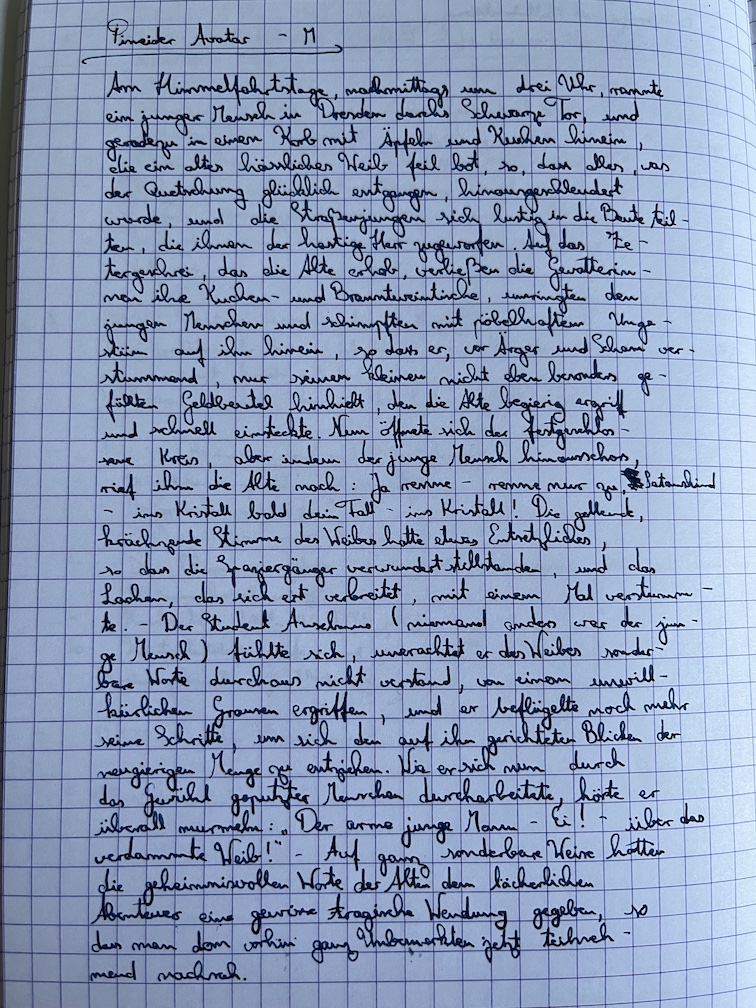 Pineider Avatar - M
Am Himmelfahrtstage, nachmittags um drei Uhr, rannte
ein junger Mensch in Dresden durchs Schwarze Tor, und
geradezu in einen Korb mit Äpfeln und Kuchen hinein,
die ein altes hässliches Weib feil bot, so, dass alles, was
der Quetschung glücklich entgangen, hinausgeschleudert
wurde, und die Straßenjungen sich lustig in die Beute teil-
ten, die ihnen der hastige Herr zugeworfen. Auf das Ze-
tergeschrei, das die Alte erhob, verließen die Gevatterin-
nen ihre Kuchen- und Branntweintische, umringten den
jungen Menschen und schimpften mit pöbelhaftem Unge-
stüm auf ihn hinein, so dass er, vor Ärger und Scham ver-
stummend, nur seinen kleinen nicht eben besonders ge-
füllten Geldbeutel hinhielt, den die Alte begierig ergriff
und schnell einsteckte. Nun öffnete sich der festgeschlos-
sene Kreis, aber indem der junge Mensch hinausschoss,
rief ihm die Alte nach: Ja renne - renne nur zu, Satanskind
- ins Kristall bald dein Fall - ins Kristall! Die gellende,
krächzende Stimme des Weibes hatte etwas Entsetzliches,
so dass die Spaziergänger verwundert stillstanden, und das
Lachen, das sich erst verbreitet, mit einem Mal verstumm-
te. - Der Student Anselmus (niemand anders war der jun-
ge Mensch) fühlte sich, unerachtet er des Weibes sonder-
bare Worte durchaus nicht verstand, von einem unwill-
kürlichen Grausen ergriffen, und er beflügelte noch mehr
seine Schritte, um sich den auf ihn gerichteten Blicken der
neugierigen Menge zu entziehen. Wie er sich nun durch
das Gewühl geputzter Menschen durcharbeitete, hörte er
überall murmeln: „Der arme junge Mann - Ei! - über das
verdammte Weib!" - Auf ganz sonderbare Weise hatten
die geheimnisvollen Worte der Alten dem lächerlichen
Abenteuer eine gewisse tragische Wendung gegeben, so
dass man dem vorhin ganz Unbemerkten jetzt teilneh-
mend nachsah.